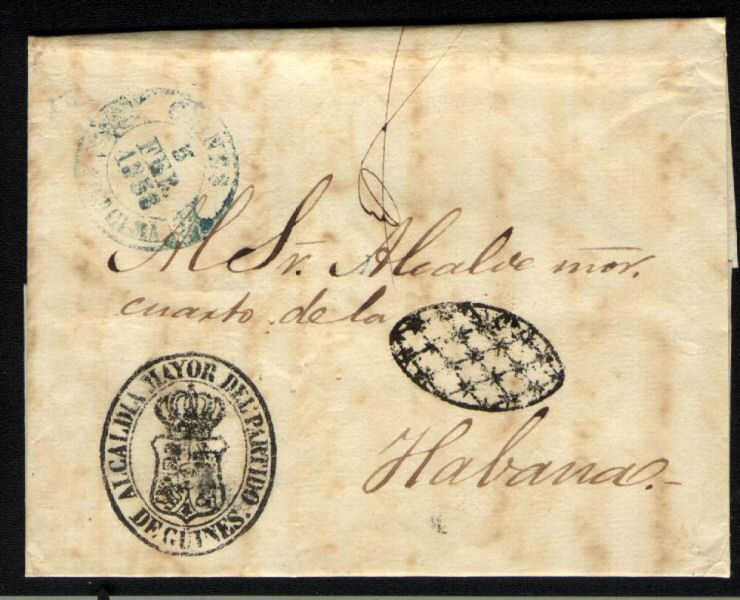 5
FEB
1858
Al Sr. Alcalde mor.
cuarto de la
Habana.
ALCALDIA MAYOR DEL PARTIDO
DE GÜINES.